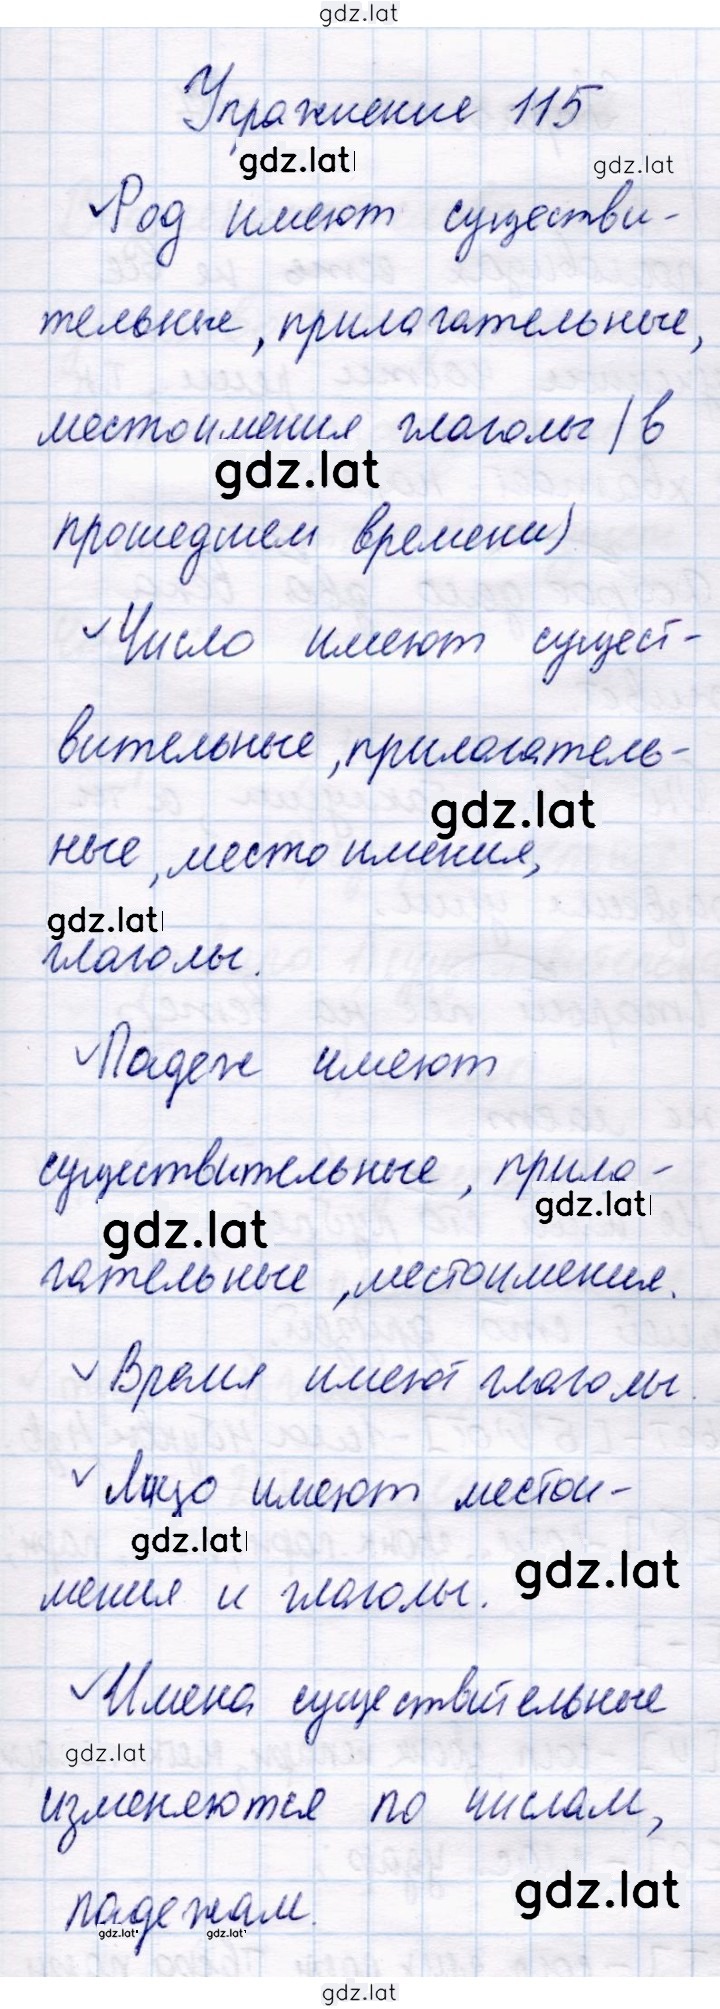 gdz.lat
Упражнение 115
gdz.lat gdz.lat
Род имеют существи-
тельные, прилагательные,
местоимения глаголы (в
gdz.lat
прошедшем времени)
Число имеют сущест-
вительные, прилагатель-
gdz.lat
ные, местоимения,
gdz.lat
глаголы.
Падеж имеют
существительные, прила-
gdz.lat gdz.lat
гательные, местоимения.
Время имеют глаголы.
Лицо имеют местои-
gdz.lat gdz.lat
мения и глаголы.
Имена существительные
gdz.lat
изменяются по числам,
gdz.lat
падежам.
gdz.lat gdz.lat
gdz.lat